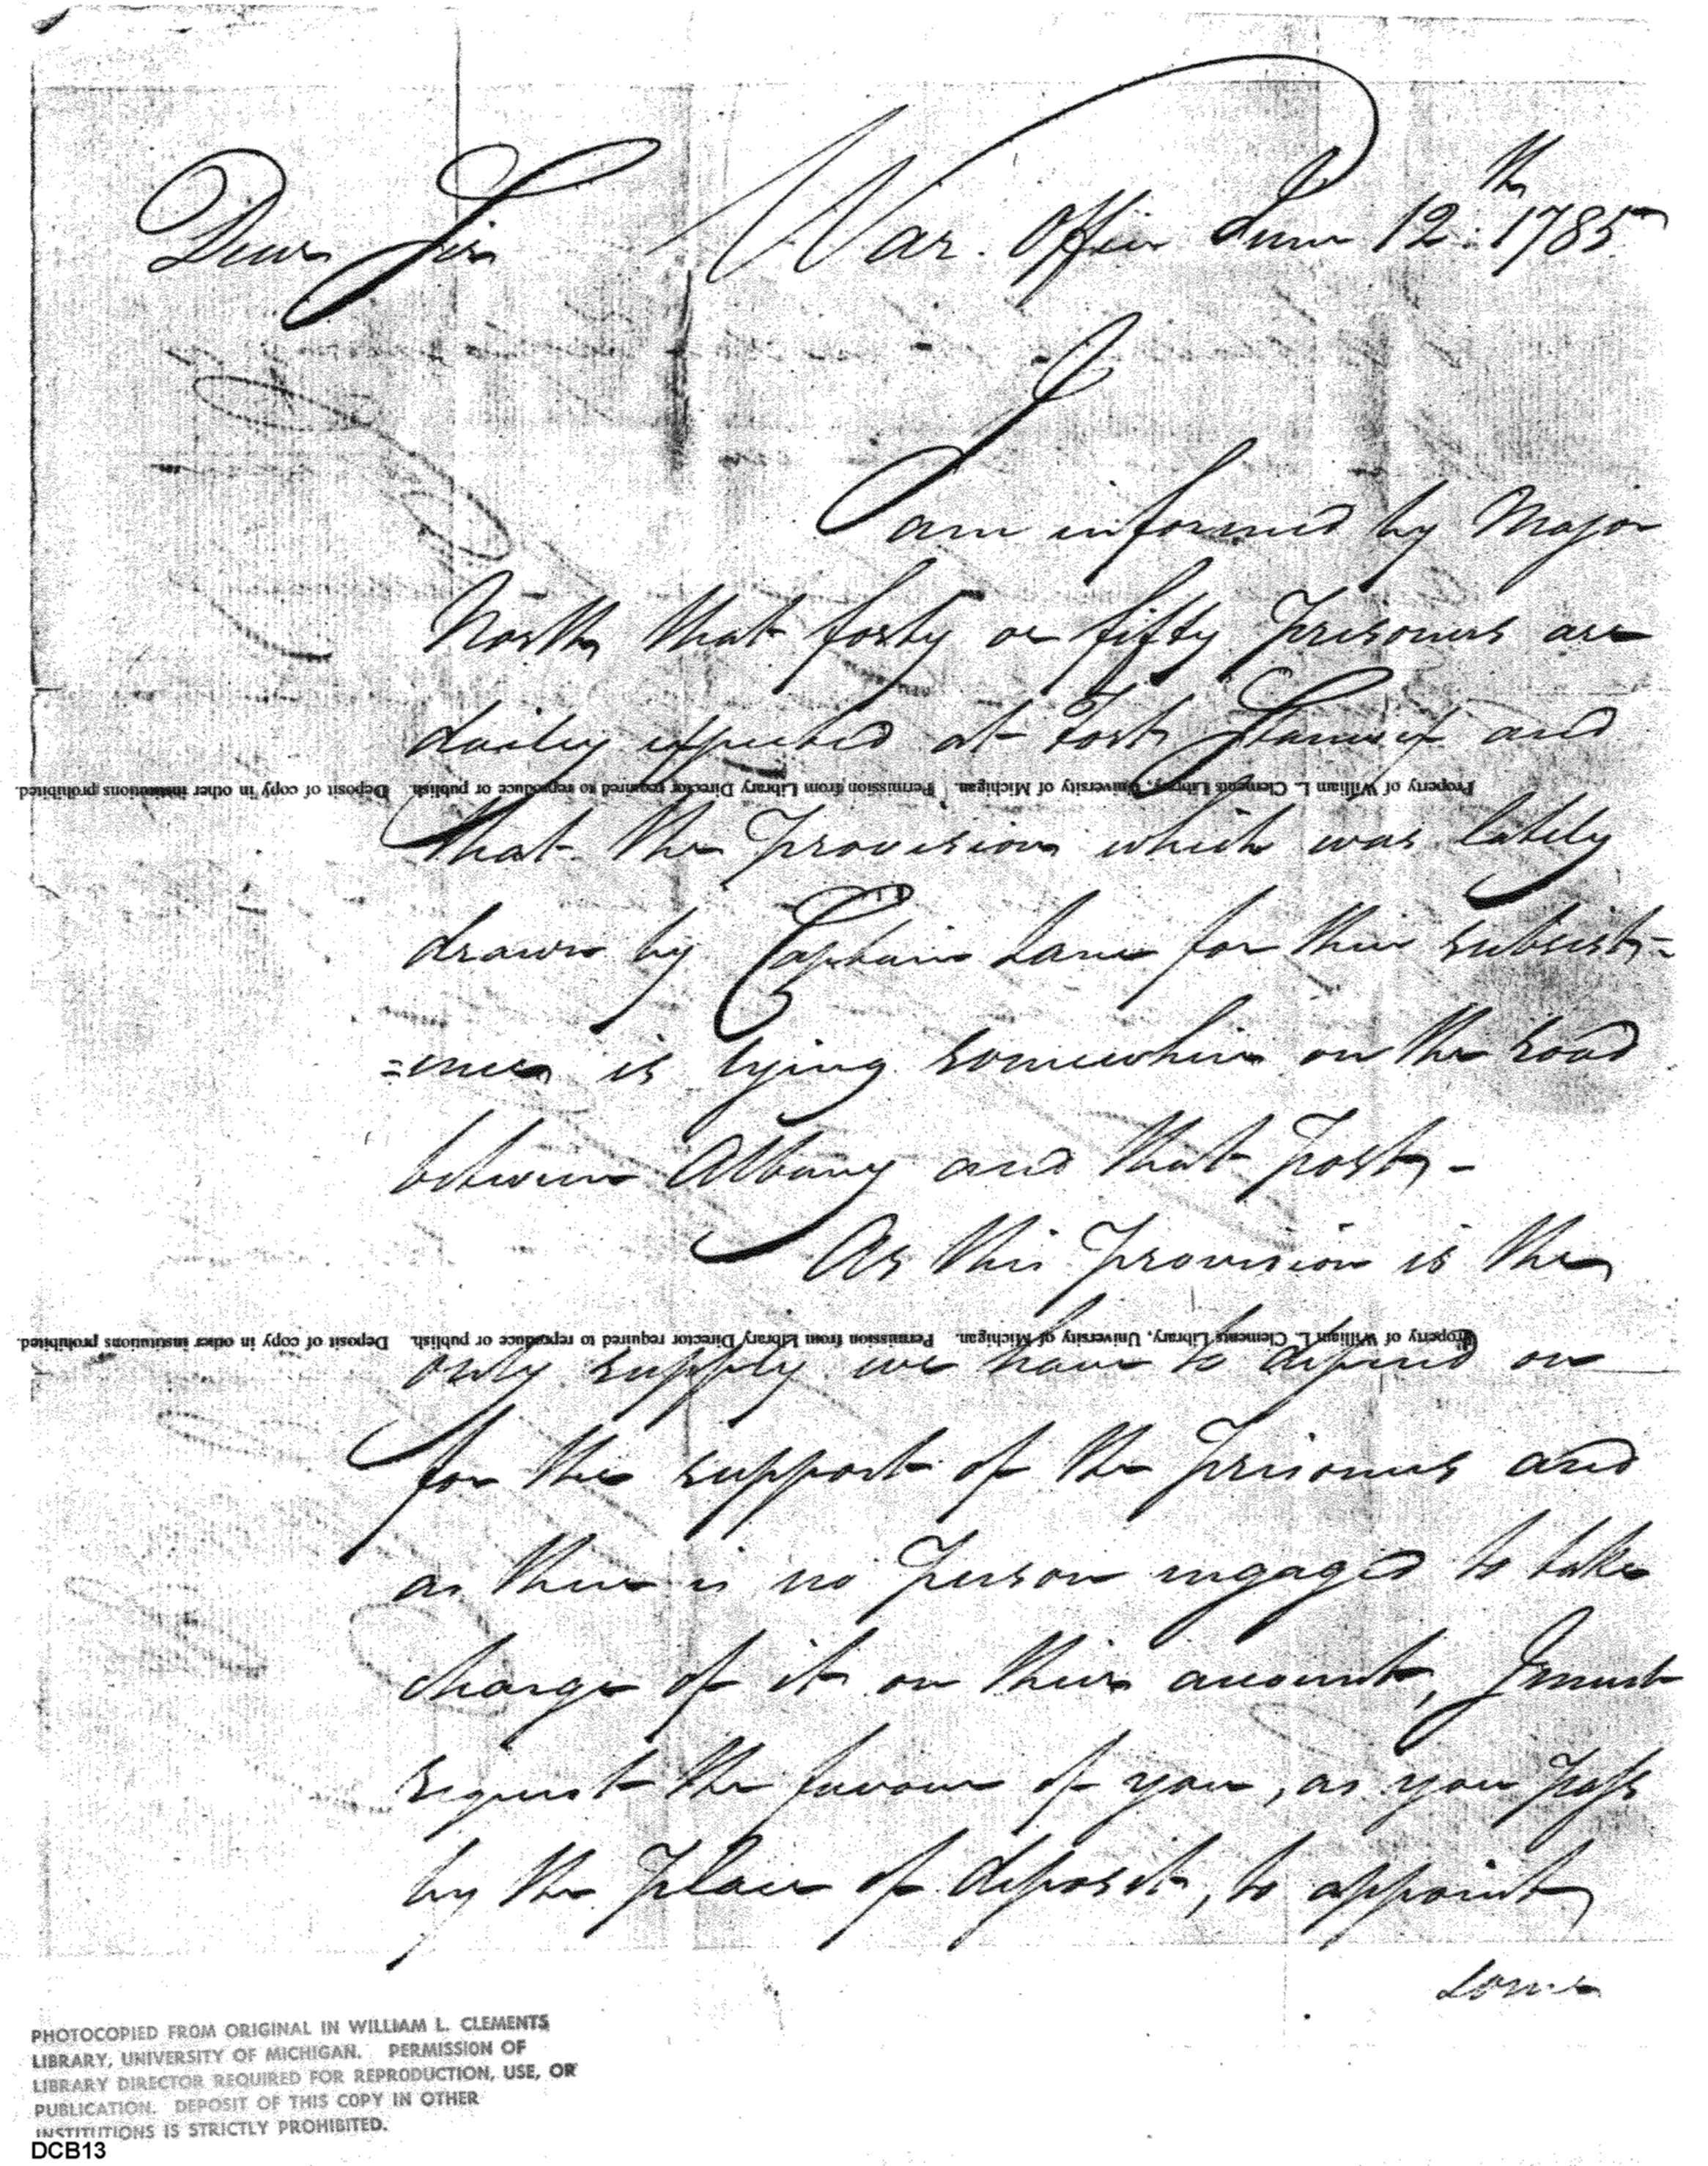 Dear Sir War Office June 12th 1785
I
am informed by Major
North that forty or fifty Prisoners are
daily expected at Fort Stanwix and
Property of William L. Clements Library, University of Michigan. Permission from Library Director required to reproduce or publish. Deposit of copy in other institutions prohibited.
that the Provision which was lately
drawn by Captain Lane for their subsist-
=ence is lying somewhere on the road
between Albany and that Post, -
As this Provision is the
Property of William L. Clements Library, University of Michigan. Permission from Library Director required to reproduce or publish. Deposit of copy in other institutions prohibited.
only supply we have to depend on
for the support of the Prisoners and
as there is no Person engaged to take
charge of it on their account, I must
request the favour of you, as you pass
by the Place of deposit, to appoint
some
PHOTOCOPIED FROM ORIGINAL IN WILLIAM L. CLEMENTS
LIBRARY, UNIVERSITY OF MICHIGAN. PERMISSION OF
LIBRARY DIRECTOR REQUIRED FOR REPRODUCTION, USE, OR
PUBLICATION. DEPOSIT OF THIS COPY IN OTHER
INSTITUTIONS IS STRICTLY PROHIBITED.
DCB13